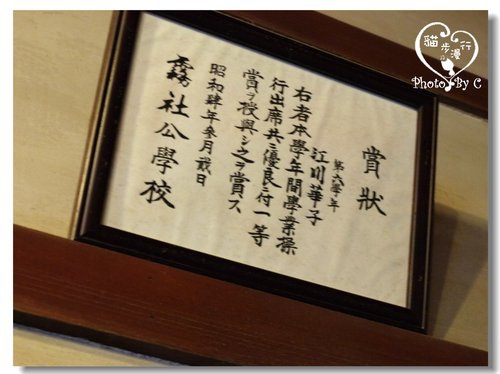 賞狀
第六學年
江川華子
右者本學年間學業操
行出席共ニ優良ニ付一等
賞ヲ授與シ之ヲ賞ス
昭和肆年叁月貮日
霧社公學校
貓步漫行
Photo By C